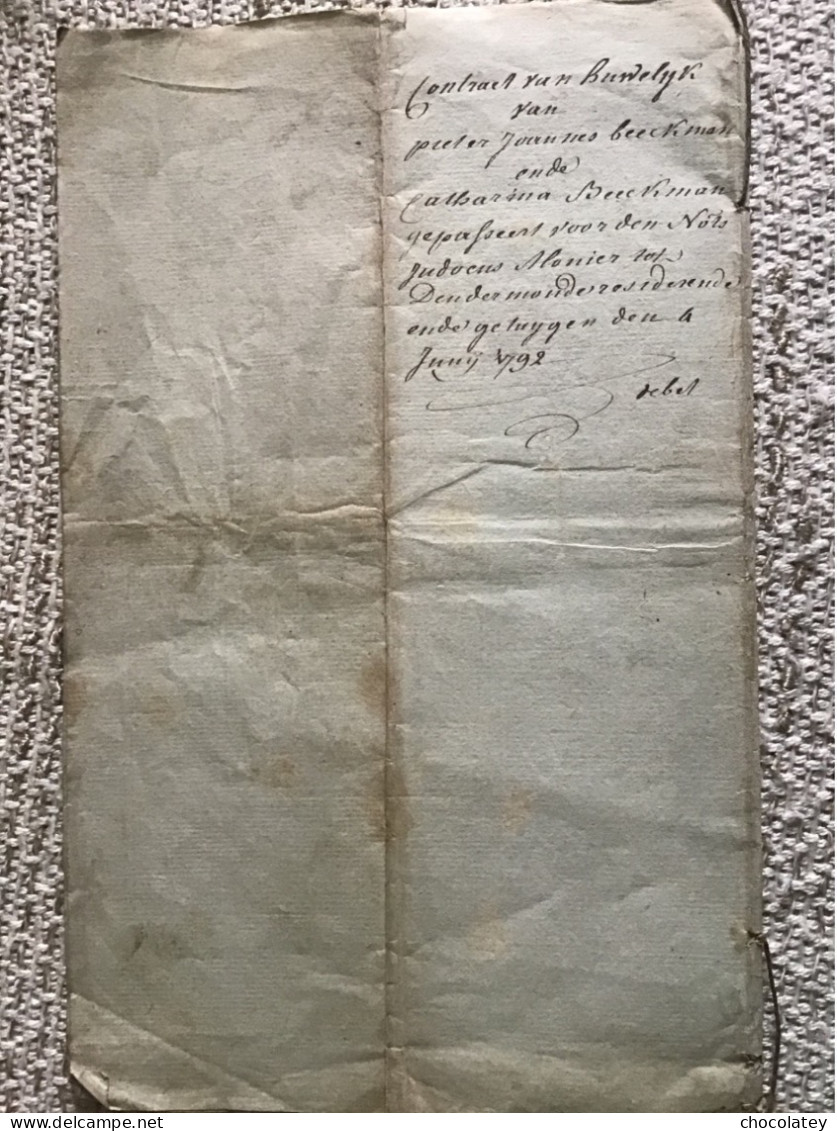 Contract van Huwelyk
van
pieter Joannes beeckman
ende
Catharina Beeckman
gepasseert voor den Nots
Judocus Monier tot
Dendermonde residerende
ende getuygen den 4
Junij 1792
debet
© chocolatey